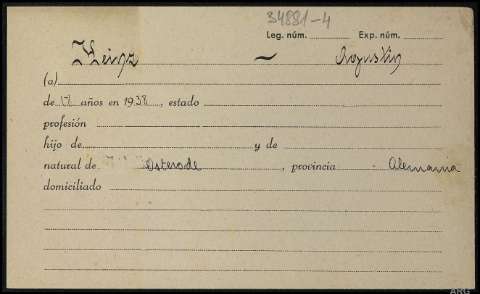 34881-4
Leg. núm. Exp. núm.
Heinz ~ Augustin
(a)
de años en 1938, estado
profesión
hijo de y de
natural de Osterode, provincia Alemania
domiciliado
ARG